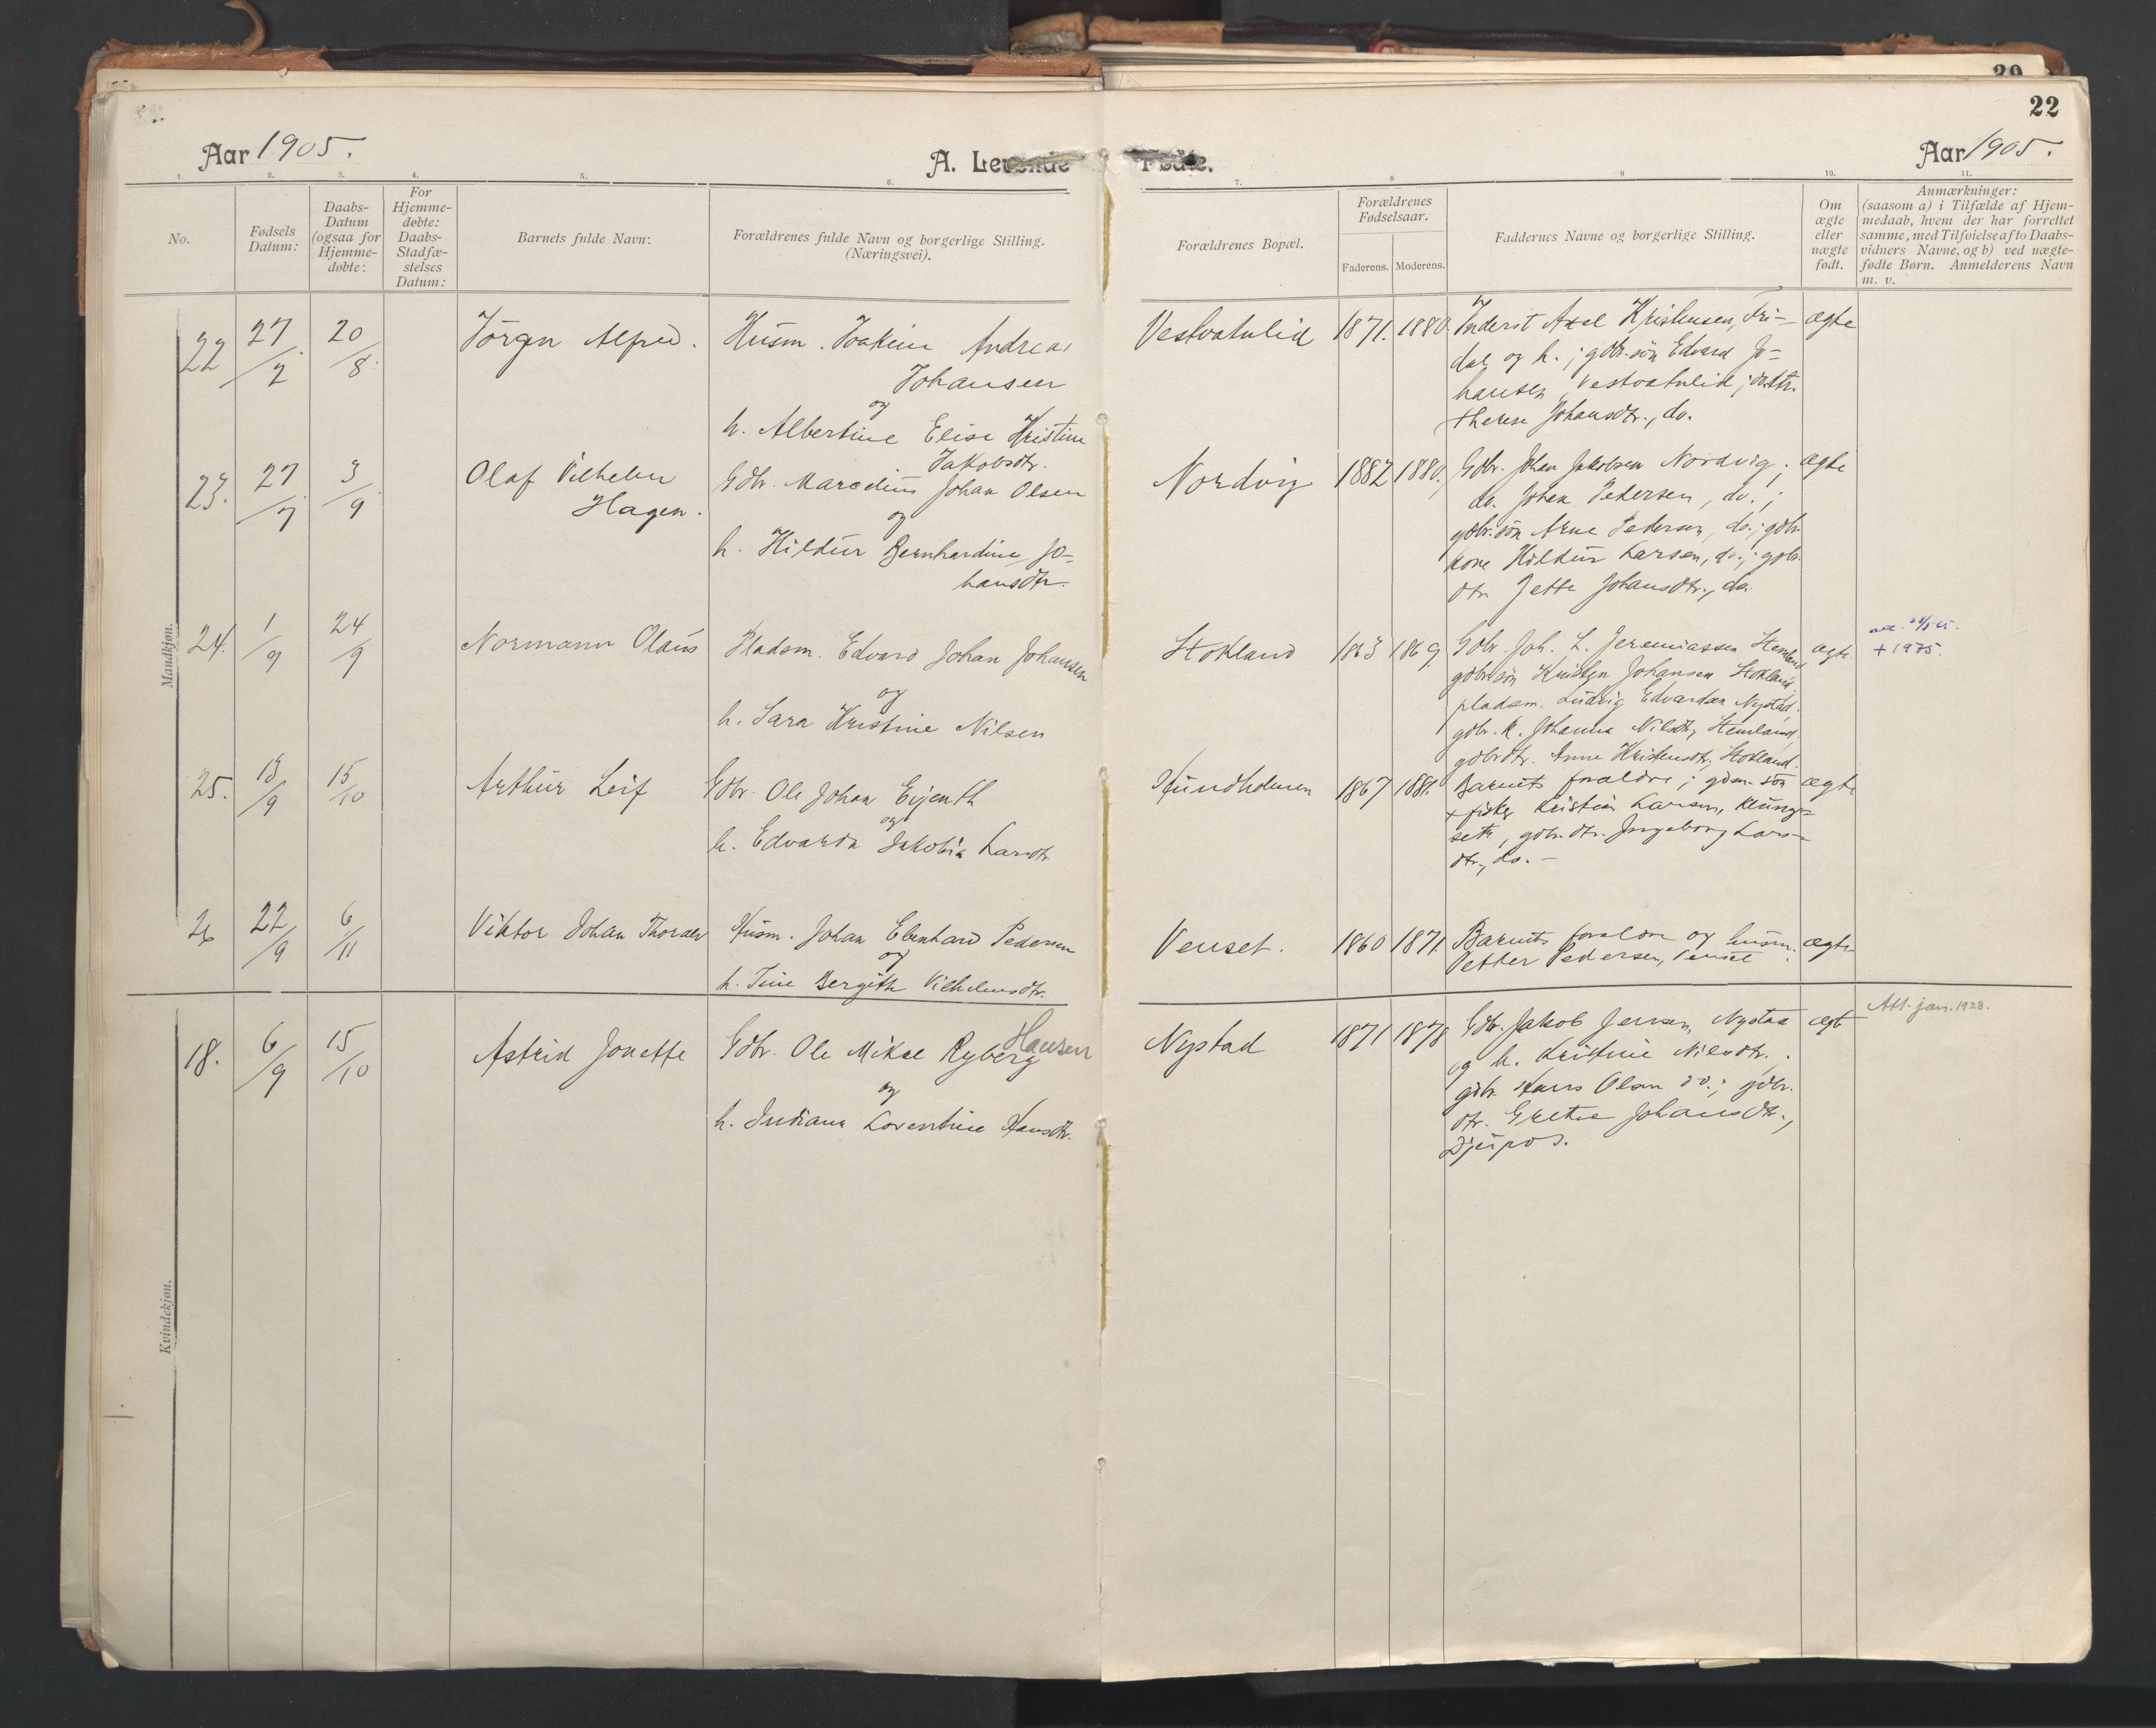 20
22
Aar 1905.
A. Levende Fødte.
Aar 1905.
1. 2. 3. 4. 5. 6. 7. 8 9 10. 11.
No.
Fødsels Datum:
Daabs-Datum (ogsaa for Hjemme-døbte:
For Hjemme-døbte: Daabs-Stadfæ-stelses Datum:
Barnets fulde Navn:
Forældrenes fulde Navn og borgerlige Stilling. (Næringsvei).
Forældrenes Bopæl.
Forældrenes Fødselsaar.
Faderens. Moderens.
Faddernes Navne og borgerlige Stilling.
Om ægte eller uægte født.
Anmærkninger:
(saasom a) i Tilfælde af Hjem-
medaab, hvem der har forrettet
samme, med Tilføielse af to Daabs-
vidners Navne, og b) ved uægte-
fødte Børn. Anmelderens Navn
m. v.
Mandkjøn.
22 27/7 20/8 Jörgen Alfred. Husm. Joakim Andreas
Johansen
og
h. Albertine Elise Kristine
Jakobsdtr.
Vestvatnlid 1871. 1880. Inderst Axel Kristensen, Fri-
dal og h.; gdbr.sön Edvard Jo-
hansen, Vestvatnlid;
Therese Johansdtr., do.
ægte
23. 27/7 3/9 Olaf Vilhelm
Hagen.
Gdbr. Marcelius Johan Olsen
og
h. Hildur Bernhardine Jo-
hansdtr.
Nordvig 1882 1880. Gdbr. Johan Jakobsen Nordvig;
do. Johan Pedersen, do.;
gdbr.sön Arne Pedersen, do.; gdbr.
kone Hildur Larsen, do.; gdbr.
dtr. Jette Johansdtr., do.
ægte
24. 1/9 24/9 Normann Olaus Pladsm. Edvard Johan Johansen
og
h. Sara Kristine Nilsen
Stokland 1863 1869 Gdbr. Joh. L. Jeremiassen
gdbr.sön Kristen Johansen Stokland.
pladsm. Ludvig Edvardsen Nystad.
gdbr. k. Johanna Nilsdtr,
gdbrdtr. Anne Kristensdtr, Stokland.
ægte
+ 1975.
25. 13/9 15/10 Arthur Leif Gdbr. Ole Johan Eijenth
og
h. Edvarda Jakobia Larsdtr.
Hundholmen 1867 1881. Barnets forældre; gdbr. sön
+ fisker Kristian Larsen, Klung-
set, gdbr. dtr. Ingeborg Lars-
dtr., do. -
ægte
26 22/9 6/11 Viktor Johan Thoralv Husm. Johan Edenhard Pedersen
og
h. Tine Bergith Vilhelmsdtr.
Venset. 1860 1871 Barnets forældre og husm.
Petter Pedersen, Venset
ægte
Kvindekjøn.
18. 6/9 15/10 Astrid Jonette Gdbr. Ole Mikal Ryberg Hansen
og
h. Indiana Lorentine Hansdtr.
Nystad 1871 1878 Gdbr. Jakob Jensen, Nystad
og h. Kristine Nilsdtr.;
gdbr. Hans Olsen do.; gdbr.
dtr. Grethe Johansdtr.,
ægte
Att. jan. 1928.